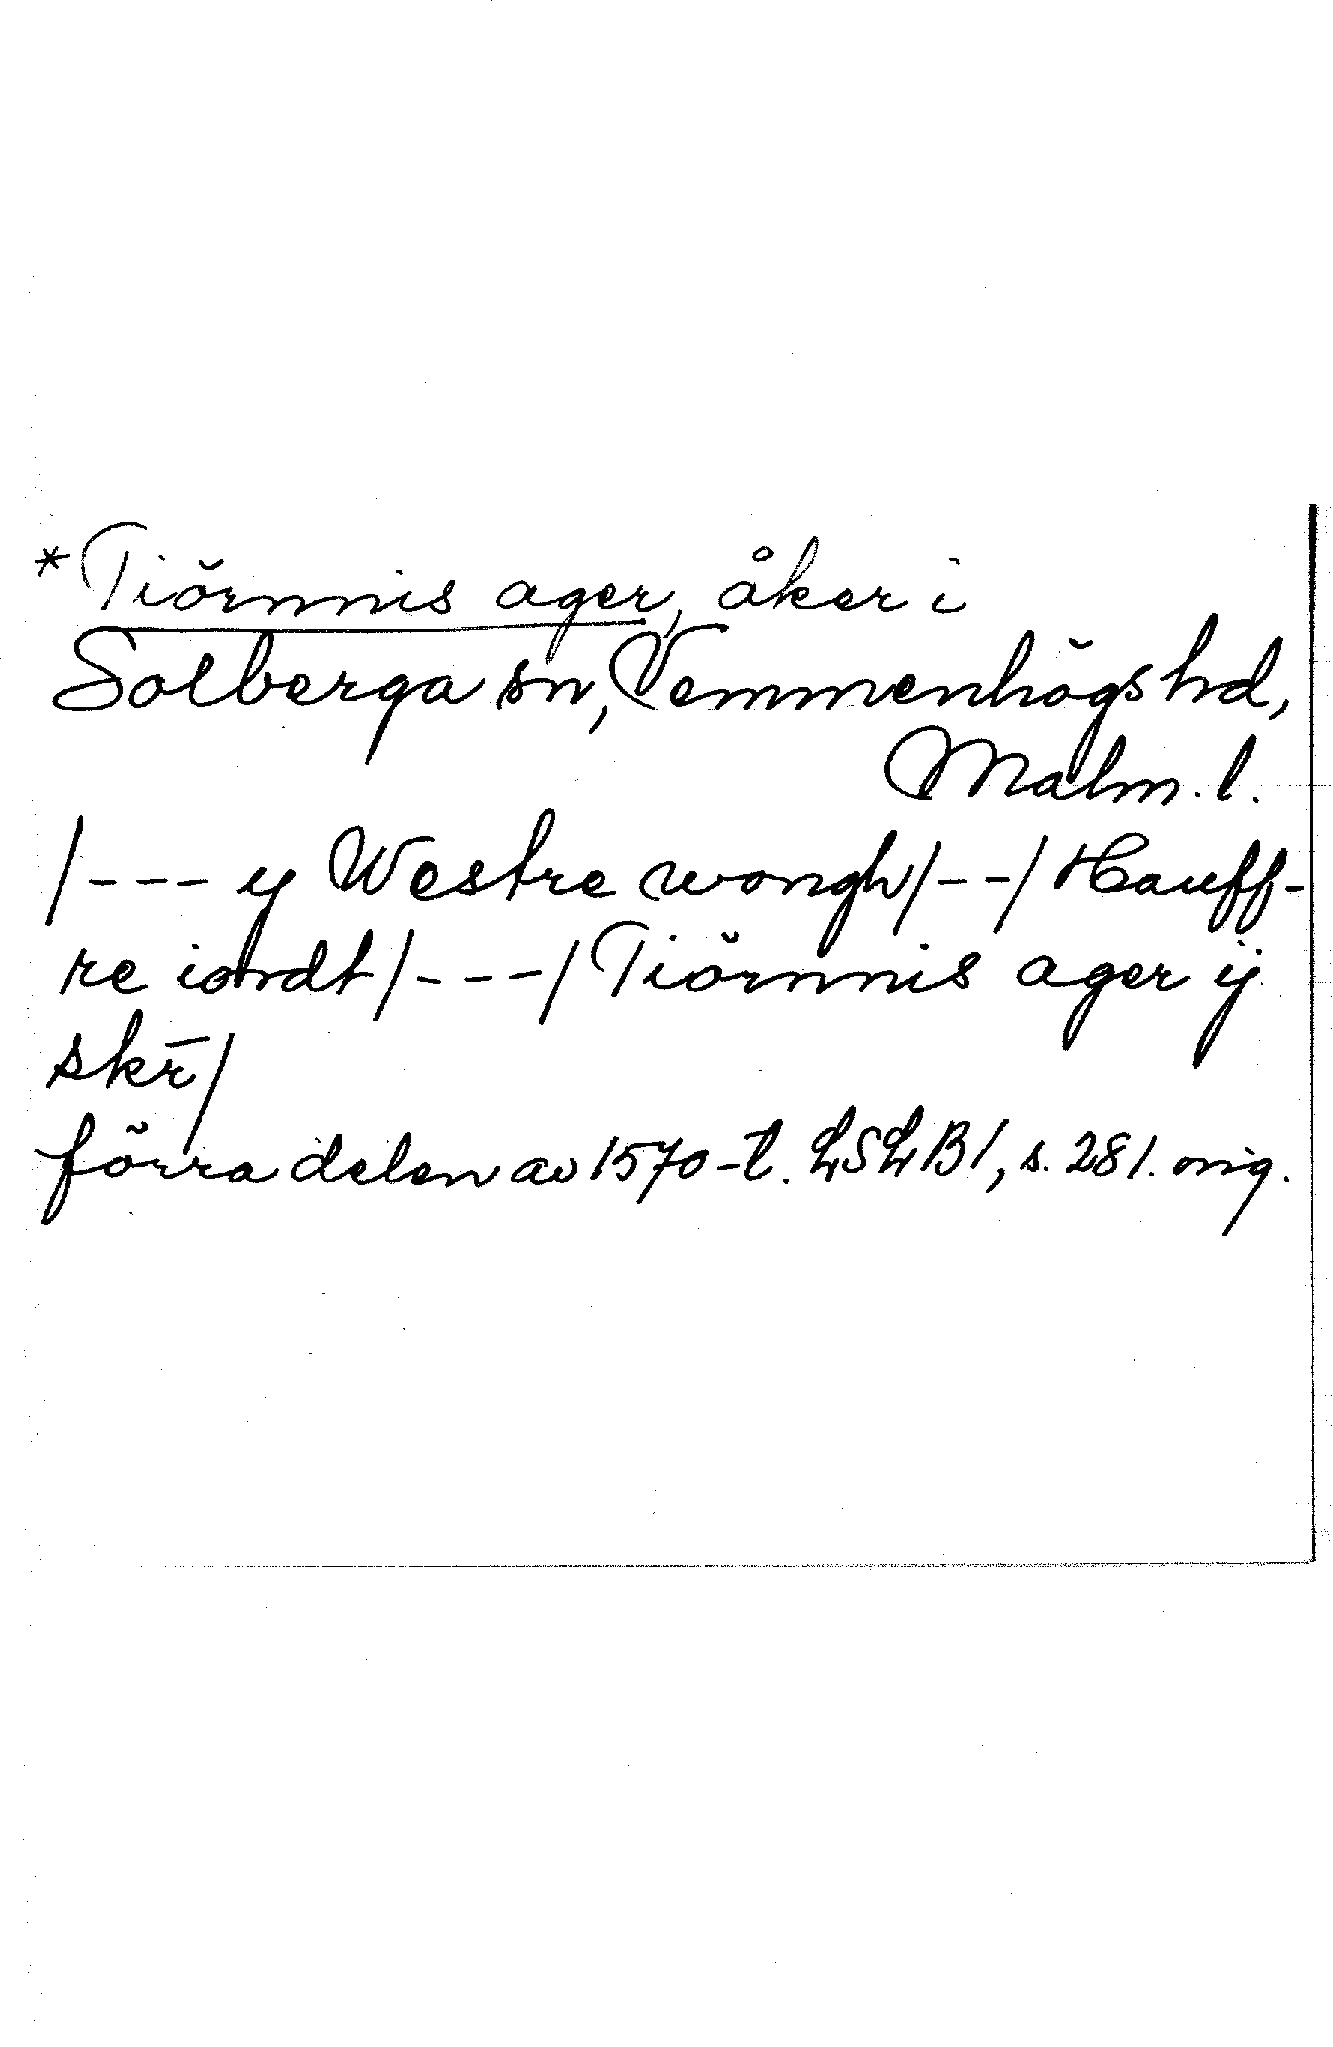 *Tiörnnis ager, åker i
Solberga sn, Vemmenhögs hd,
Malm. l.
/--- y Westre wongh/--/ Hauff-
re iordt/---/ Tiörnnis ager ij
skr̄/
förra delen av 1570-t. LSLB1, s. 281. orig.